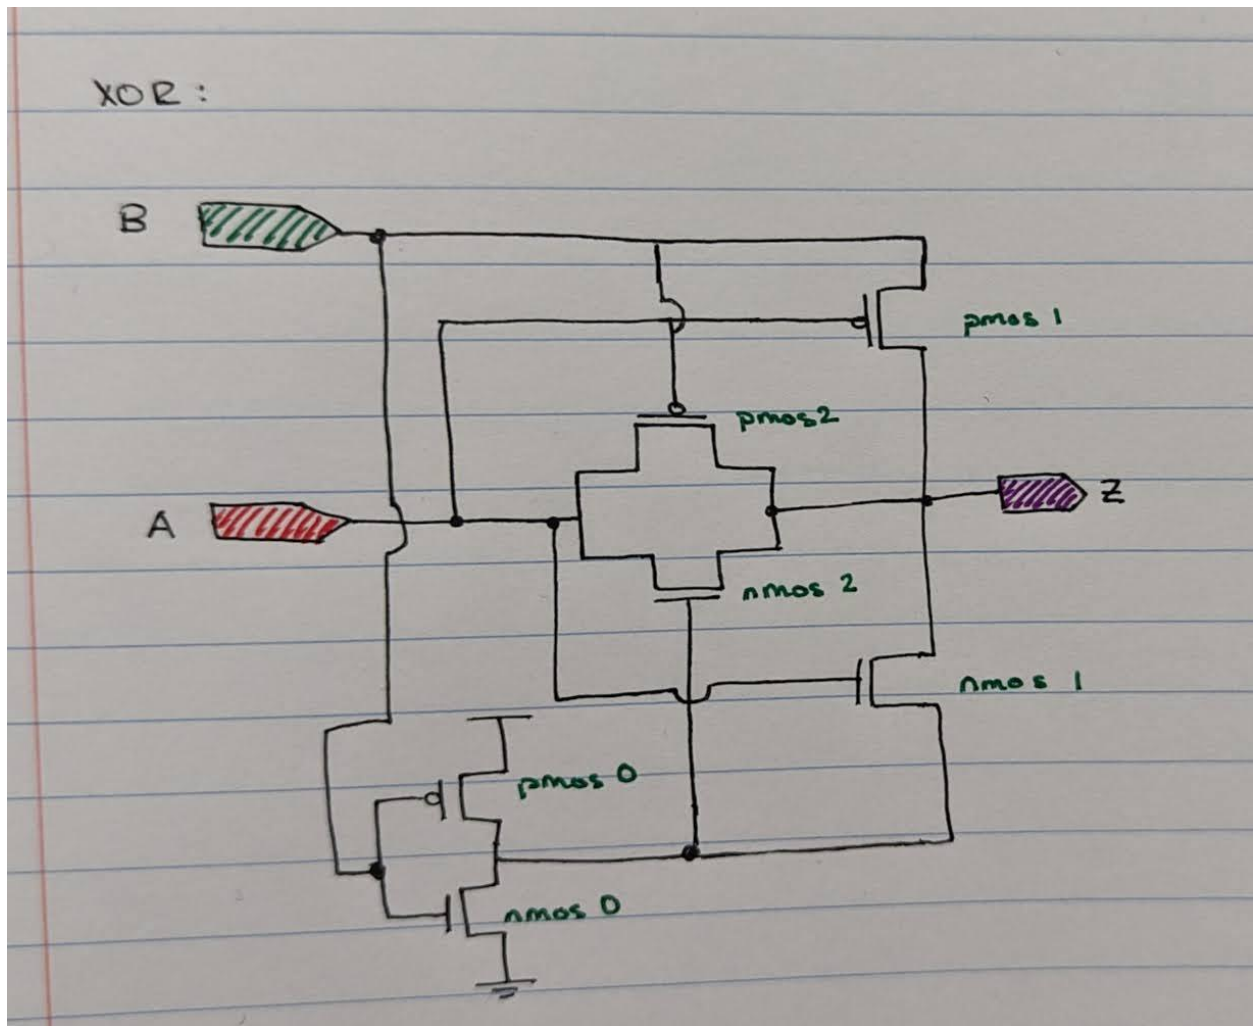 XOR:
B
pmos 1
pmos2
A
Z
nmos 2
nmos 1
pmos 0
nmos 0